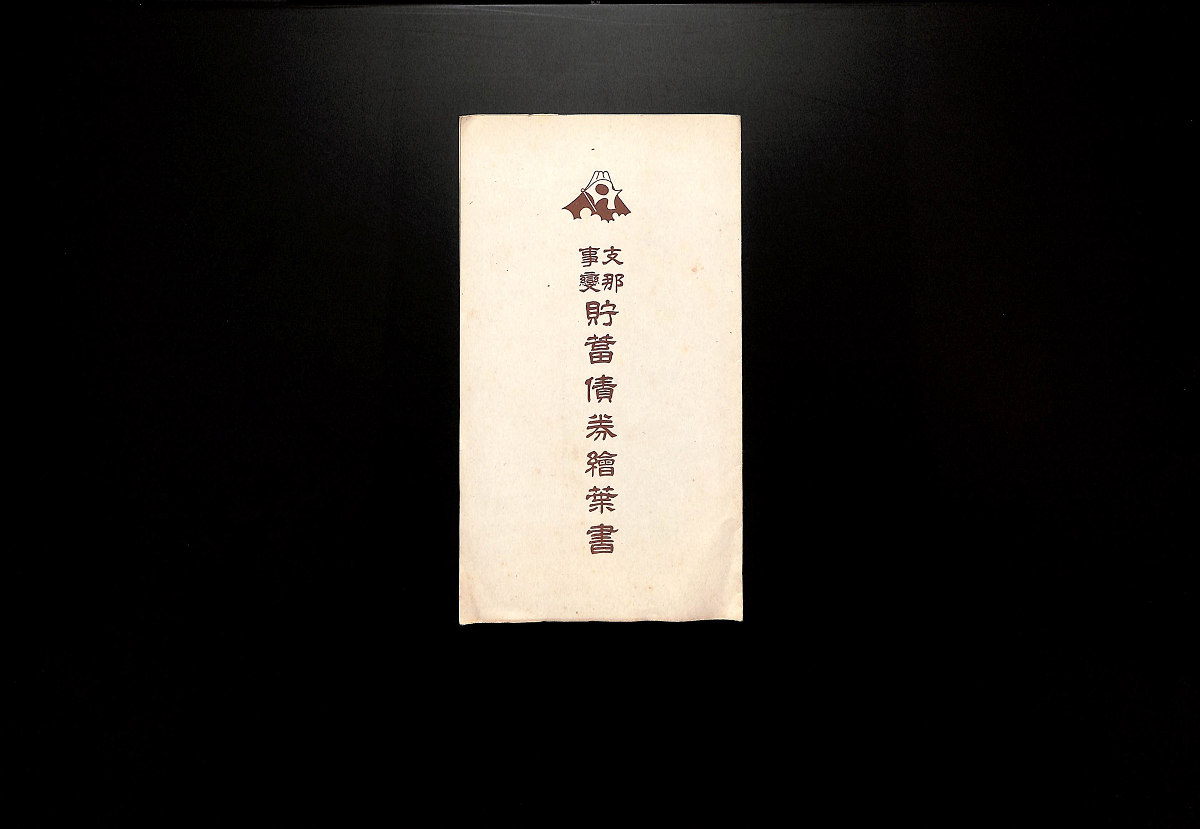 支那事變貯蓄債券繪葉書